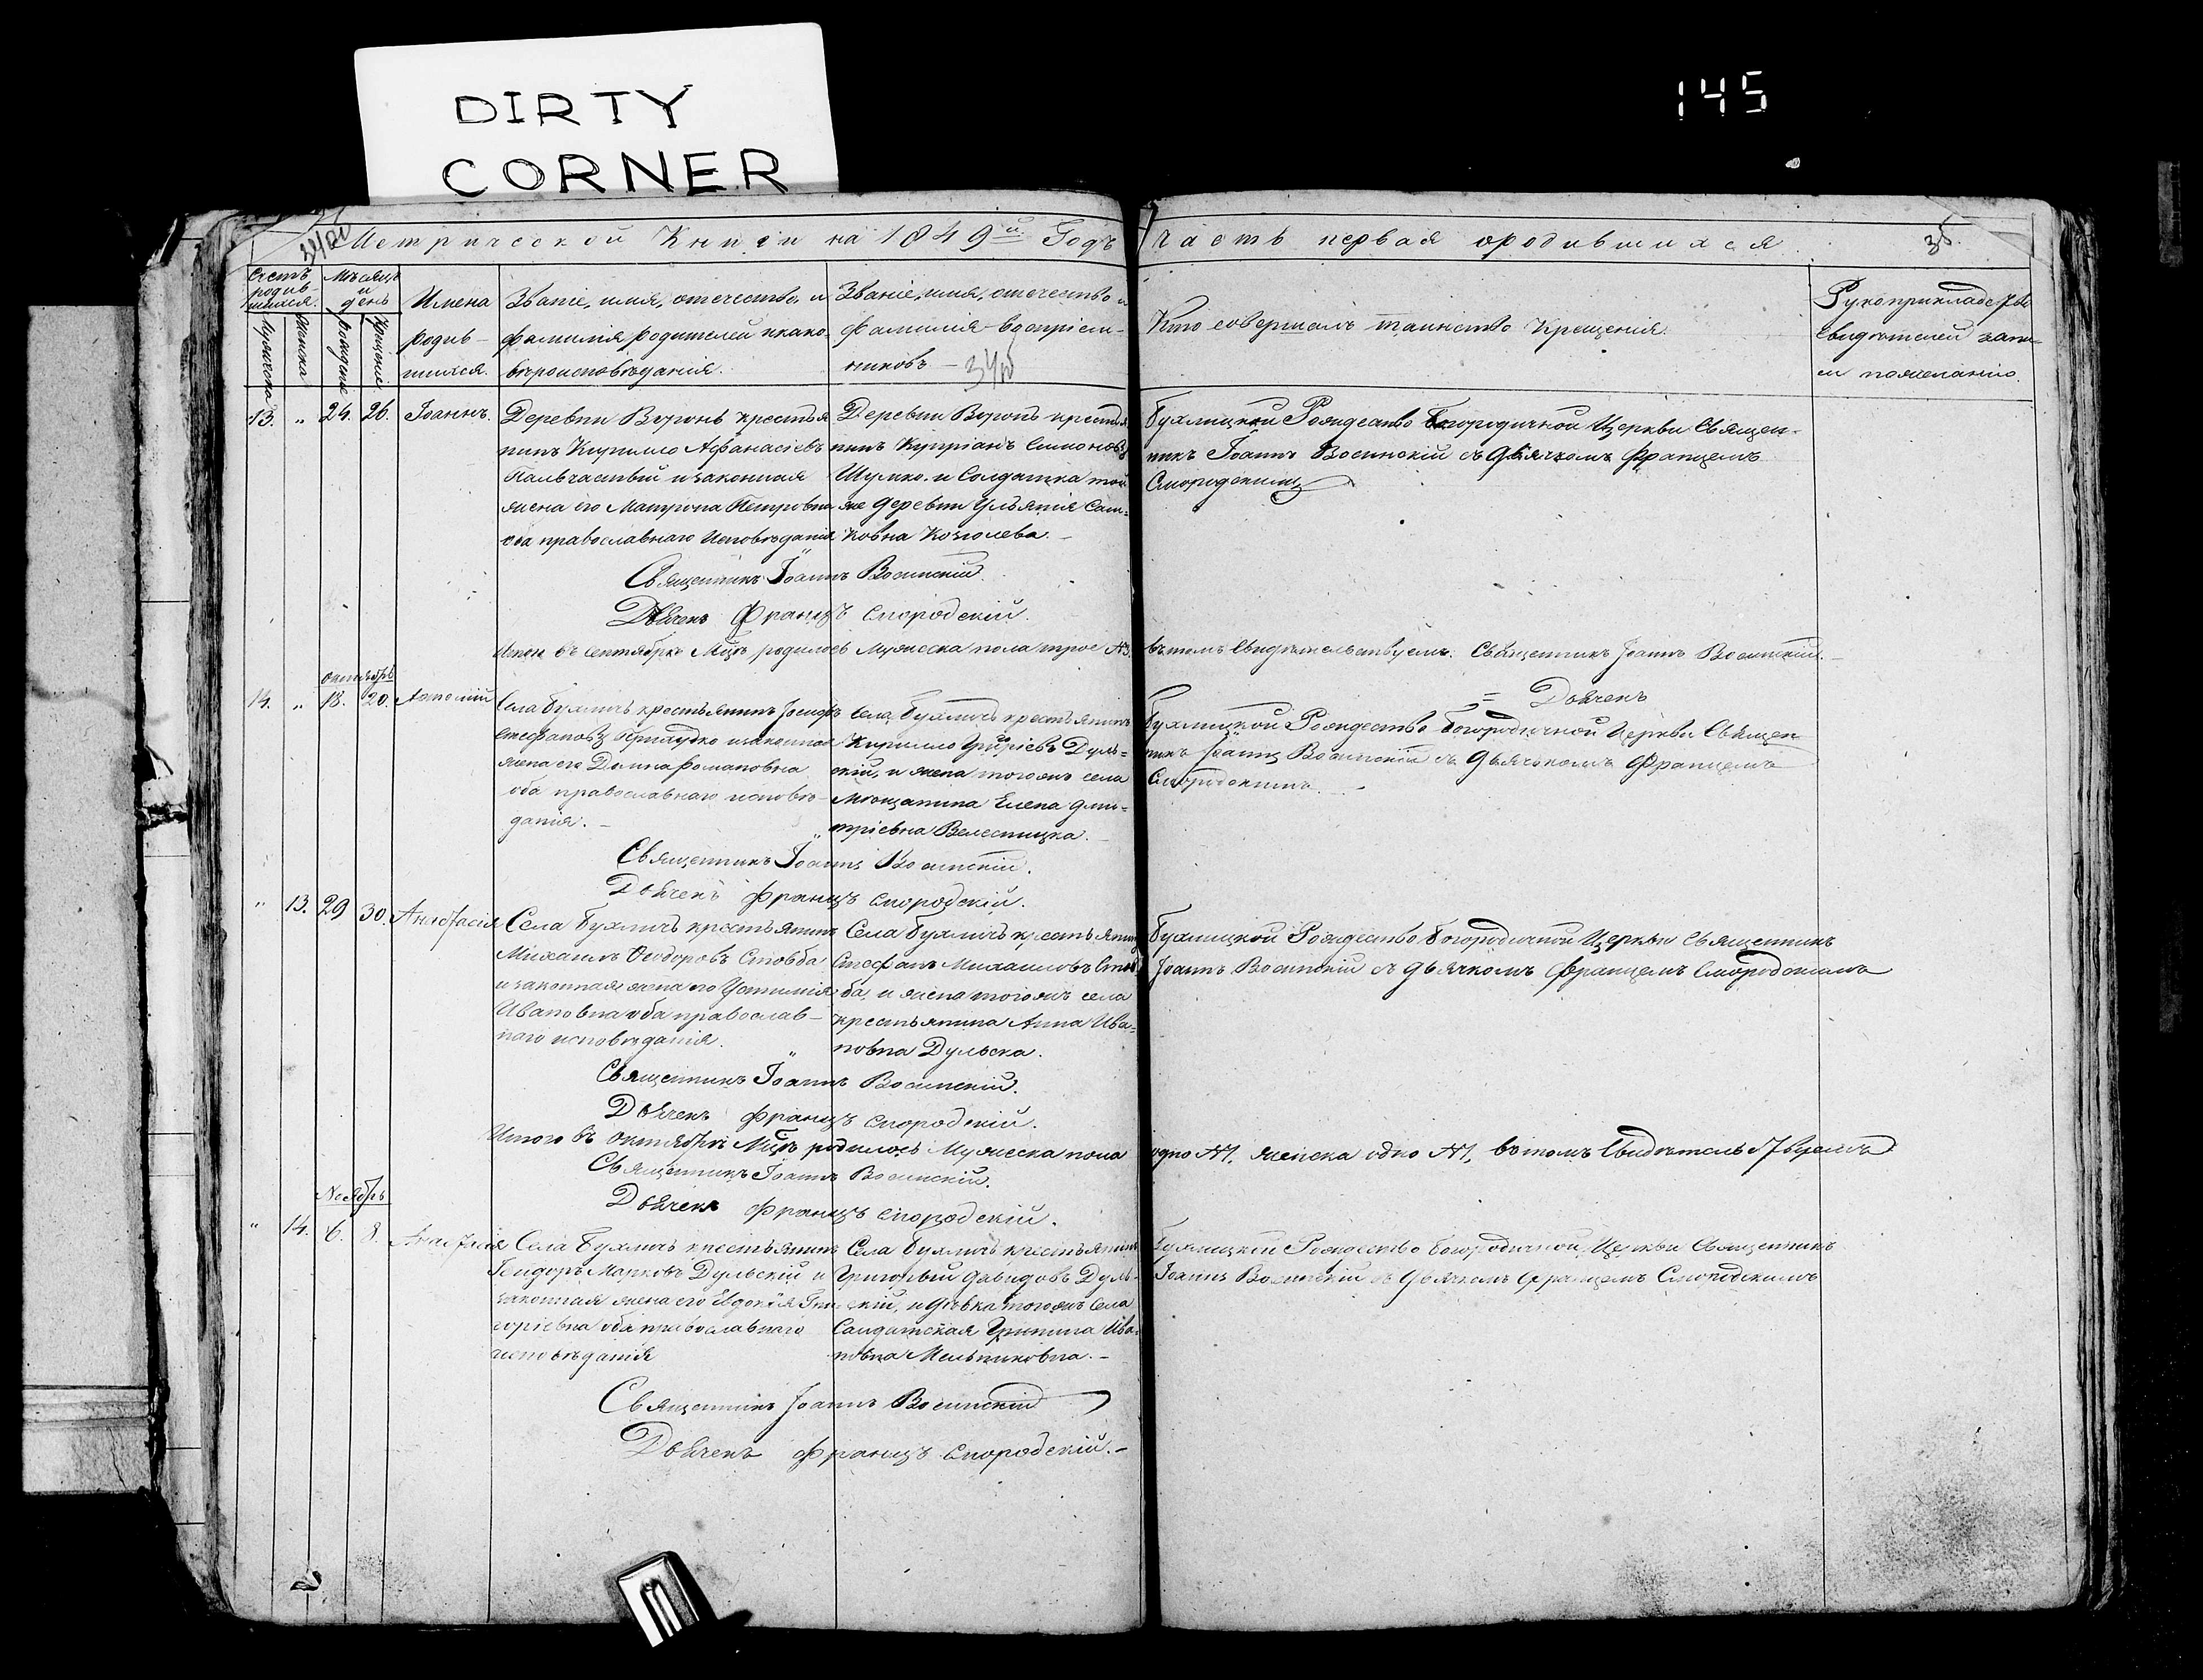 DIRTY
CORNER
145
Метрической Книги на 1849й Годъ Часть первая о родившихся.
35.
Счетъ родив-
шихся.
Мужеска
Женска
Мѣсяцъ
и
день
рожденія
крещенія
Имена
родив-
шихся.
Званіе, имя, отечество, и
фамилія родителей и како-
вѣроисповѣданія.
Званіе, имя, отечество и
фамилія воспріем-
никовъ
Кто совершалъ таинство Крещенія.
Рукоприкладство
свидѣтелей запи-
си по желанію.
13. „ 24. 26. Іоаннъ.
Деревни Воронь крестья
нинъ Кирилло Афанасіевъ
Пальчастый и законная
жена его Матрона Петровна
оба православнаго Исповѣданія
Деревни Воронь крестья
нинъ Кипріанъ Симоновъ
Шумко. и Солдатка той
же деревни Ульянія Сам-
ковна Козолева. -
Бухлицкой Рождество Богородичной Церкви Священ-
никъ Іоаннъ Восинскій съ Дьячкомъ Францемъ
Смородскимъ
Священникъ Іоаннъ Восинскій.
Дьячекъ Францъ Смородскій.
Итого въ Сентябрѣ Мцѣ родилось Мужеска пола трое №3.
въ томъ Свидѣтельствуемъ. Священникъ Іоаннъ Восинскій. -
= Дьячекъ
Октябрь
14. „ 18. 20. Антоній
Села Бухличъ крестьянинъ Іосифъ
Стефановъ и законная
жена его Домна Романовна
оба православнаго исповѣ-
данія. -
Села Бухличъ крестьянинъ
Кирилло Григоріевъ Дуль-
скій, и жена того же села
Мѣщанина Елена Дми-
тріевна Велесницка. -
Бухлицкой Рождество Богородичной Церкви Священ
никъ Іоаннъ Восинскій съ Дьячкомъ Францемъ
Смородскимъ. -
Священникъ Іоаннъ Восинскій.
Дьячекъ Францъ Смородскій.
„ 13. 29 30. Анастасія
Села Бухличъ крестьянинъ
Михаилъ Ѳеодоровъ Стовба
и законная жена его Устинія
Ивановна оба православ-
наго исповѣданія.
Села Бухличъ крестьянинъ
Стефанъ Михаиловъ Стов
ба, и жена того же села
крестьянина Анна Ива-
новна Дульска.
Бухлицкой Рождество Богородичной Церкви Священникъ
Іоаннъ Восинскій съ Дьячкомъ Францемъ Смородскимъ
Священникъ Іоаннъ Восинскій.
Дьячекъ Францъ Смородскій.
Итого въ Октябрѣ Мцѣ родилось Мужеска пола
одно №1. женска одно №1, въ томъ Свидѣтельствуемъ
Священникъ Іоаннъ Восинскій.
Дьячекъ Францъ Смородскій.
Ноябрь
„ 14. 6. 8. Анастасія
Села Бухличъ крестьянинъ
Марковъ Дульскій и
законная жена его Евдокія Гри
горіевна оба православнаго
исповѣданія
Села Бухличъ крестьянинъ
Григорій Давидовъ Дуль-
скій, и дѣвка того же Села
Солдатская Ива-
новна Мельниковна. -
Бухлицкой Рождество Богородичной Церкви Священникъ
Іоаннъ Восинскій съ Дьячкомъ Францемъ Смородскимъ
Священникъ Іоаннъ Восинскій
Дьячекъ Францъ Смородскій. -